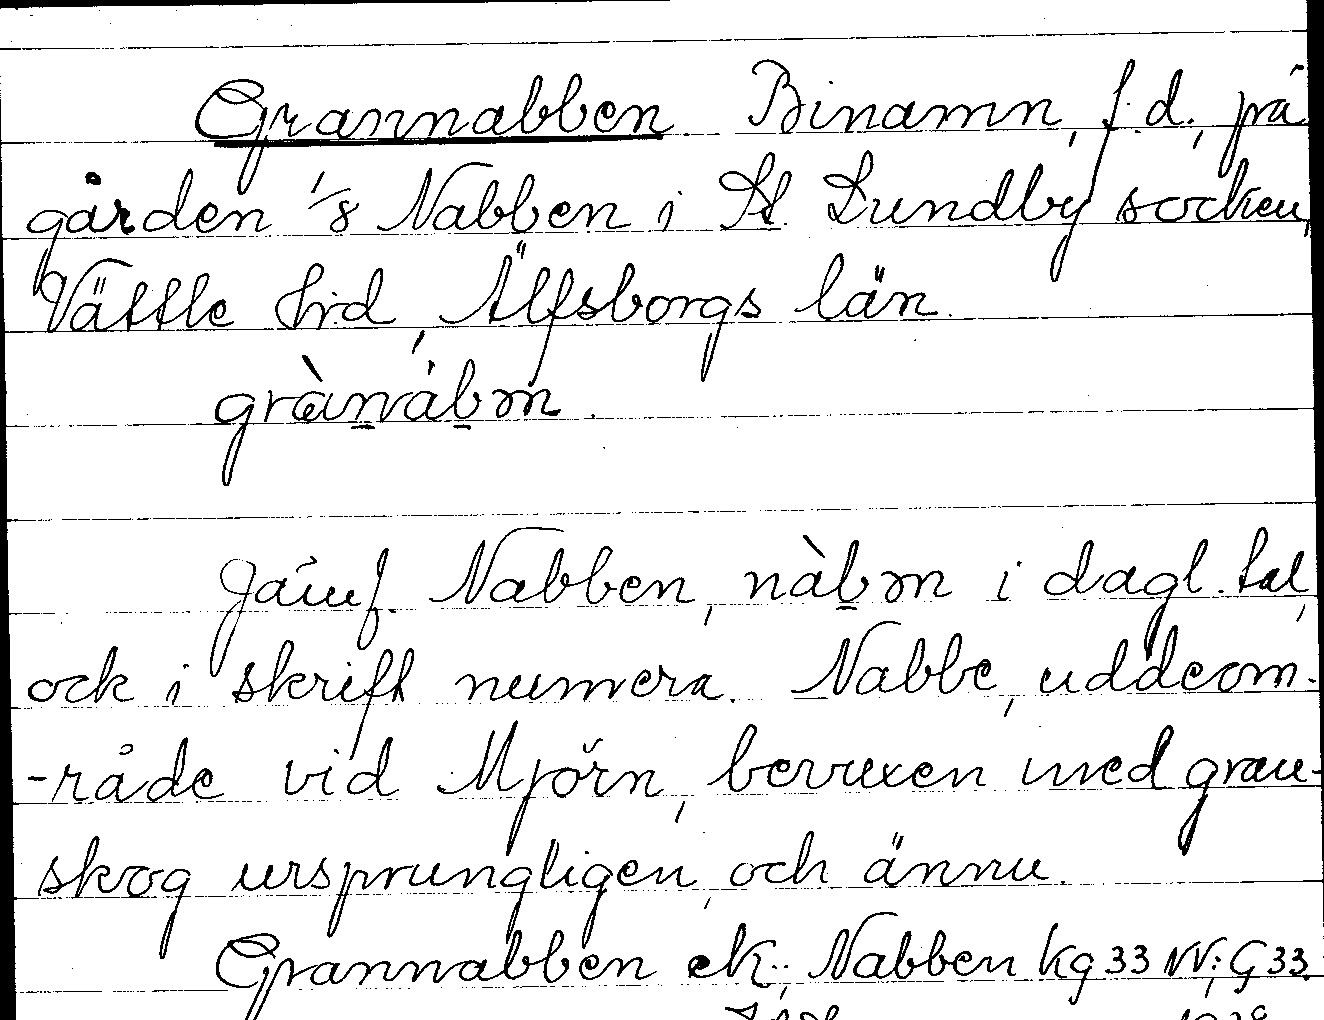 Grannabben. Binamn, f.d., på
gården 1/8 Nabben i St. Lundby socken,
Vättle hrd, Älfsborgs län.
grànnábm̥.
Jämf. Nabben, nàbm̥ i dagl. tal,
ock i skrift numera. Nabbe, uddeom-
-råde vid Mjörn, bevuxen med gran-
skog ursprungligen, och ännu.
Grannabben ek., Nabben Kg 33 NV; G 33.